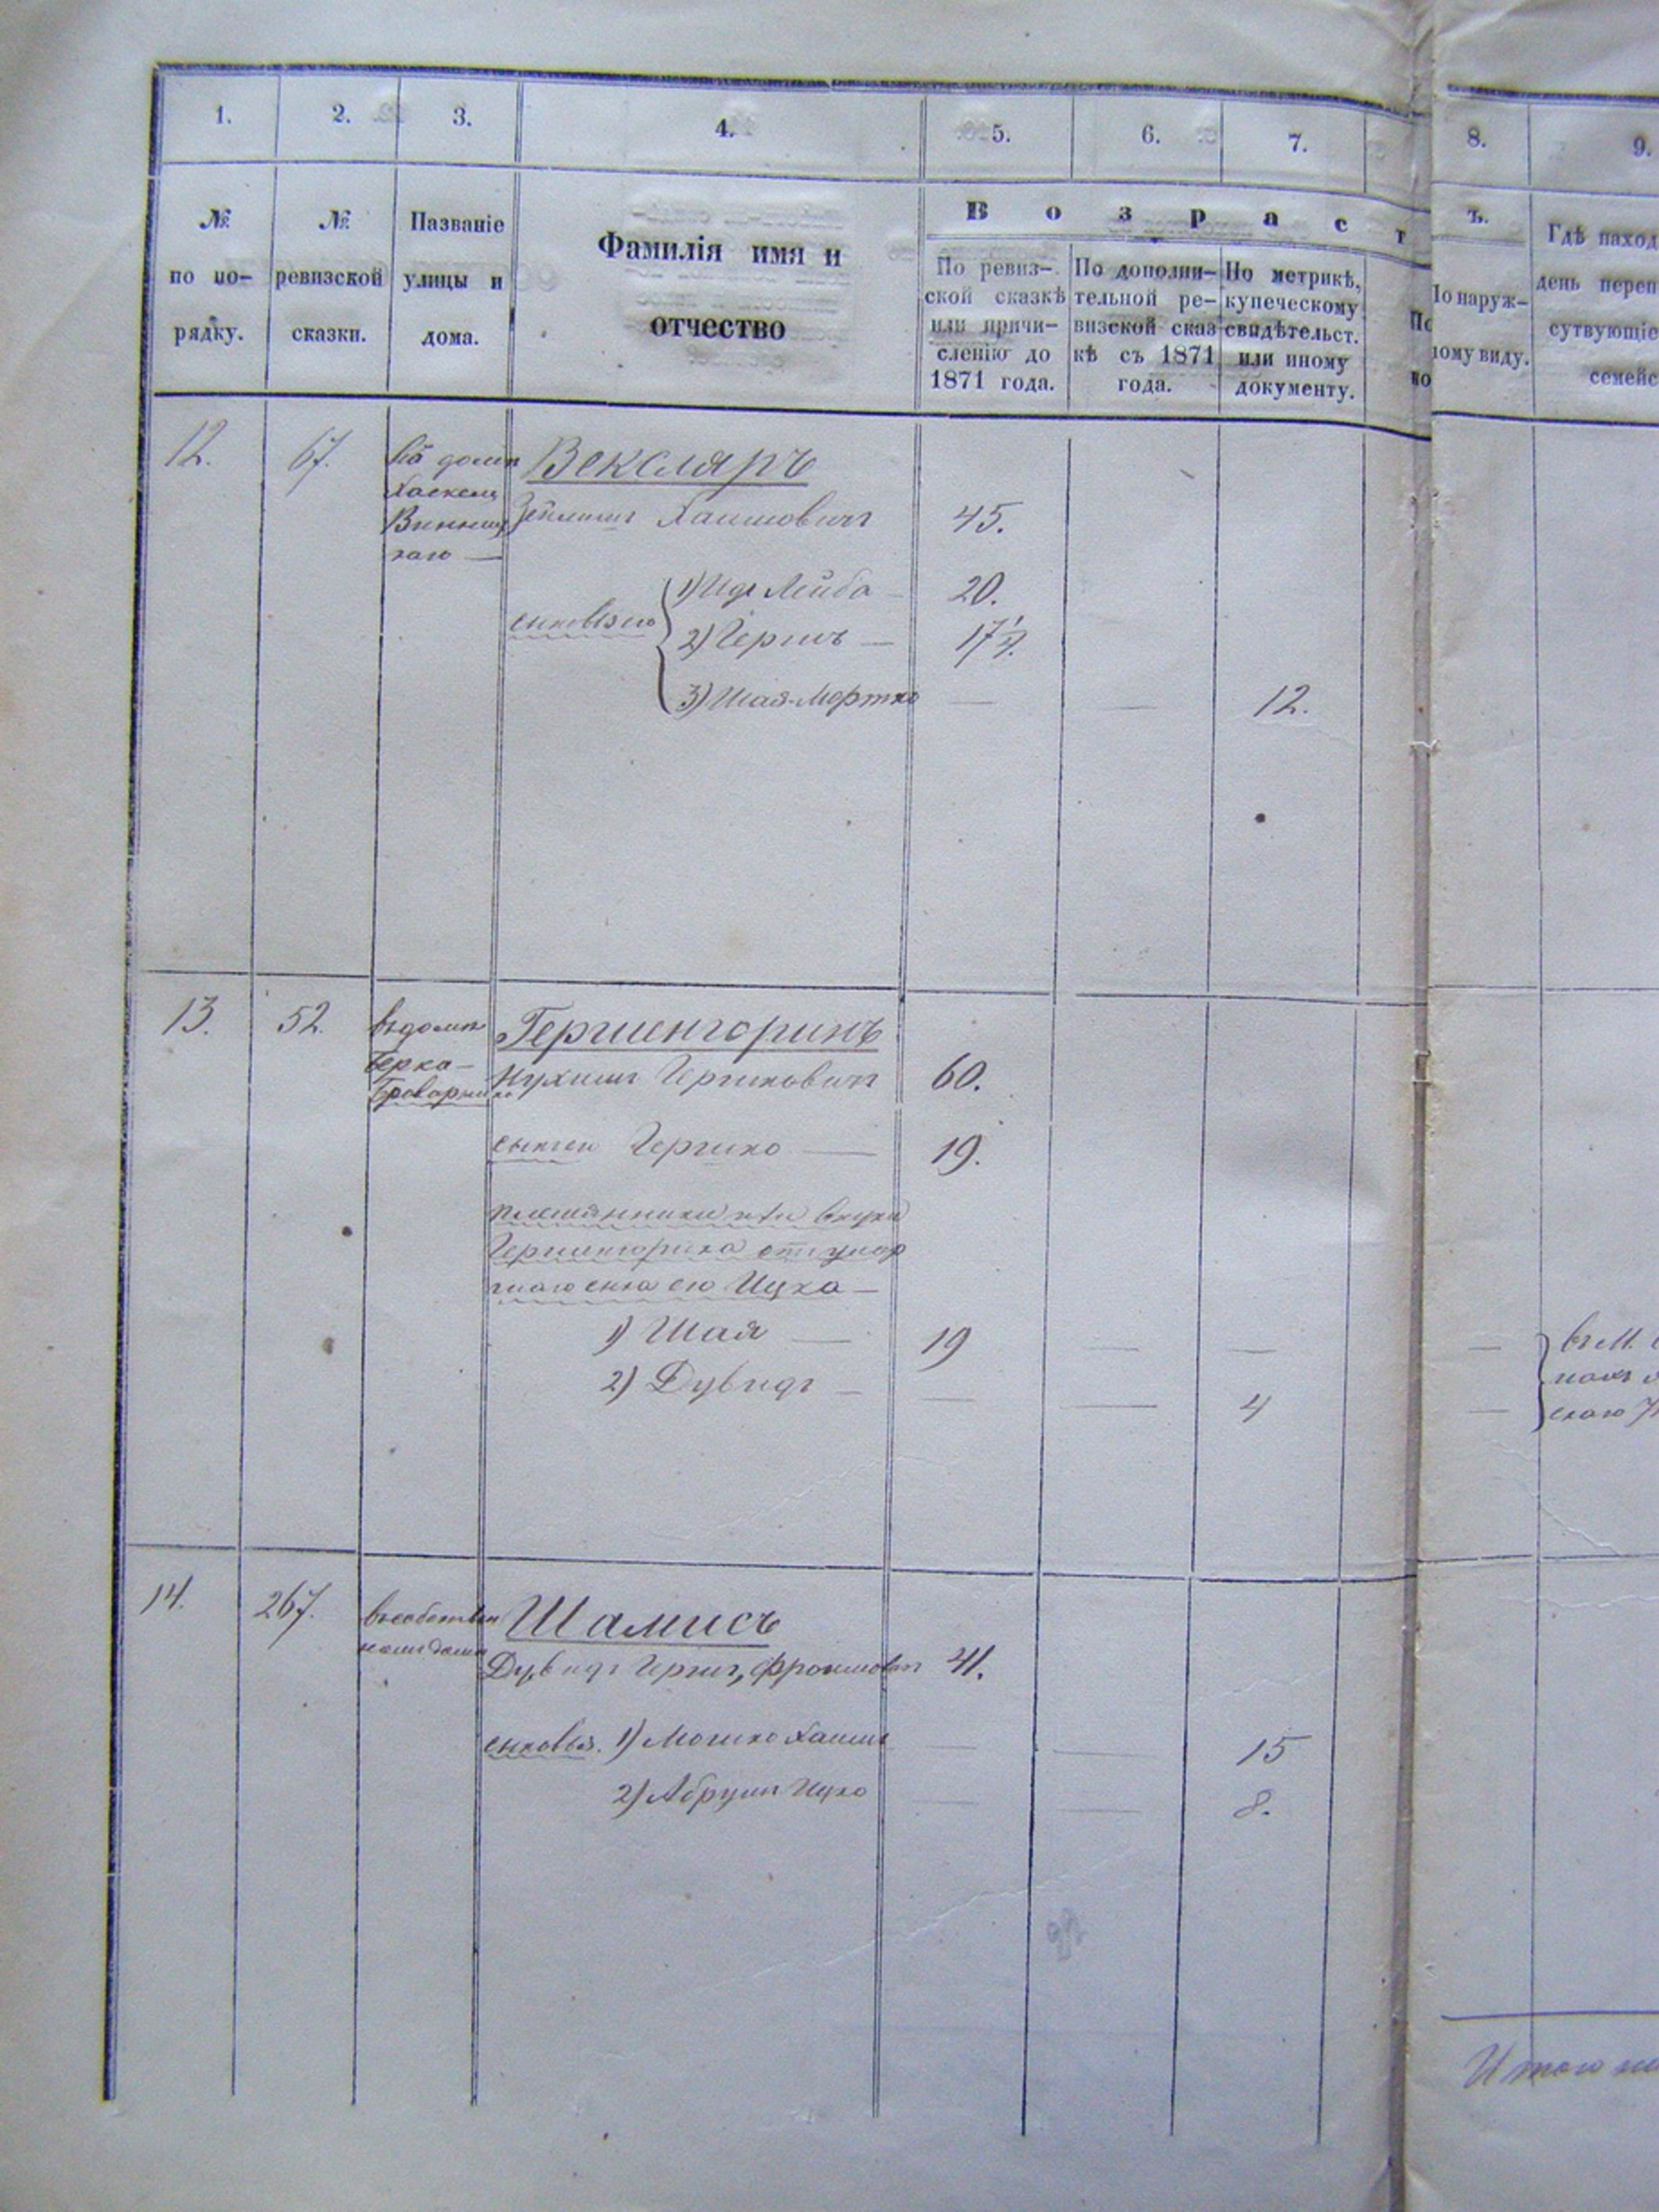 1. 2. 3. 4. 5. 6. 7. 8. 9.
№ по порядку.
№ ревизской сказки.
Названіе улицы и дома.
Фамилія имя и
отчество
В о з р а с т ъ.
По ревиз-
ской сказкѣ
или причи-
сленію до
1871 года.
По дополни-
тельной ре-
визской сказ
кѣ съ 1871
года.
По метрикѣ,
купеческому
свидѣтельст.
или иному
документу.
По наруж-
ному виду.
Гдѣ наход
день переп
сутвующіе
семейс
12. 67. въ домѣ Вексляръ
Хаскеля
Зейлигъ Хаимовичъ 45.
1) Ицъ Лейба 20.
сыновья его
2) Гершъ — 17½.
3) Шая-Мортко — — 12.
13. 52. въ домѣ Гершенгоринъ
Берка
Броварника
Нухимъ Гершковичъ 60.
сынъ его Гершко — 19.
племянники или внуки
Гершенгорина отъ умер
шаго сына его Ицка —
1) Шая — 19 — — —
2) Дувидъ — — — 4 —
14. 267. въ собствен Шамисъ
номъ домѣ
Дувидъ Гершъ, Фроимовъ 41.
сыновья. 1) Мошко Хаимъ — — 15
2) Абрумъ Ицко — — 8.
Итого